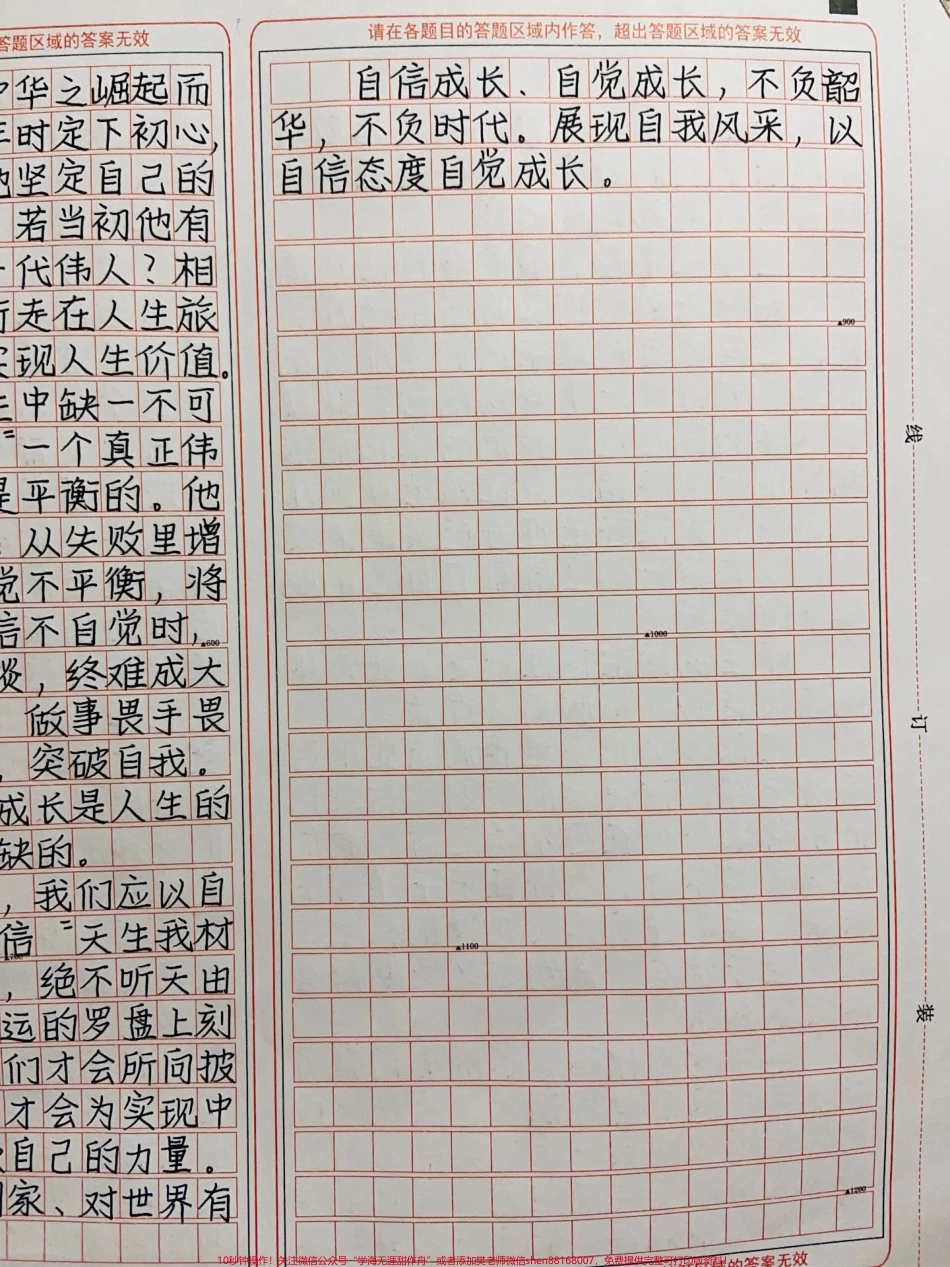 答题区域的答案无效
华之崛起而
时定下初心,
坚定自己的
若当初他有
代伟人?相
走在人生旅
现人生价值。
中缺一不可
“一个真正伟
是平衡的。他
从失败里增
觉不平衡,将
信不自觉时,
▲600
谈,终难成大
做事畏手畏
,突破自我。
成长是人生的
缺的。
,我们应以自
信“天生我材
▲700
,绝不听天由
运的罗盘上刻
们才会所向披
才会为实现中
自己的力量。
家、对世界有
请在各题目的答题区域内作答,超出答题区域的答案无效
自信成长、自觉成长,不负韶
华,不负时代。展现自我风采,以
自信态度自觉成长。
▲900
▲1000
▲1100
▲1200
线
订
装
的答案无效
10秒钟操作!关注微信公众号“学海无涯甜作舟”或者添加樊老师微信shen88168007,免费提供完整可打印版资料!